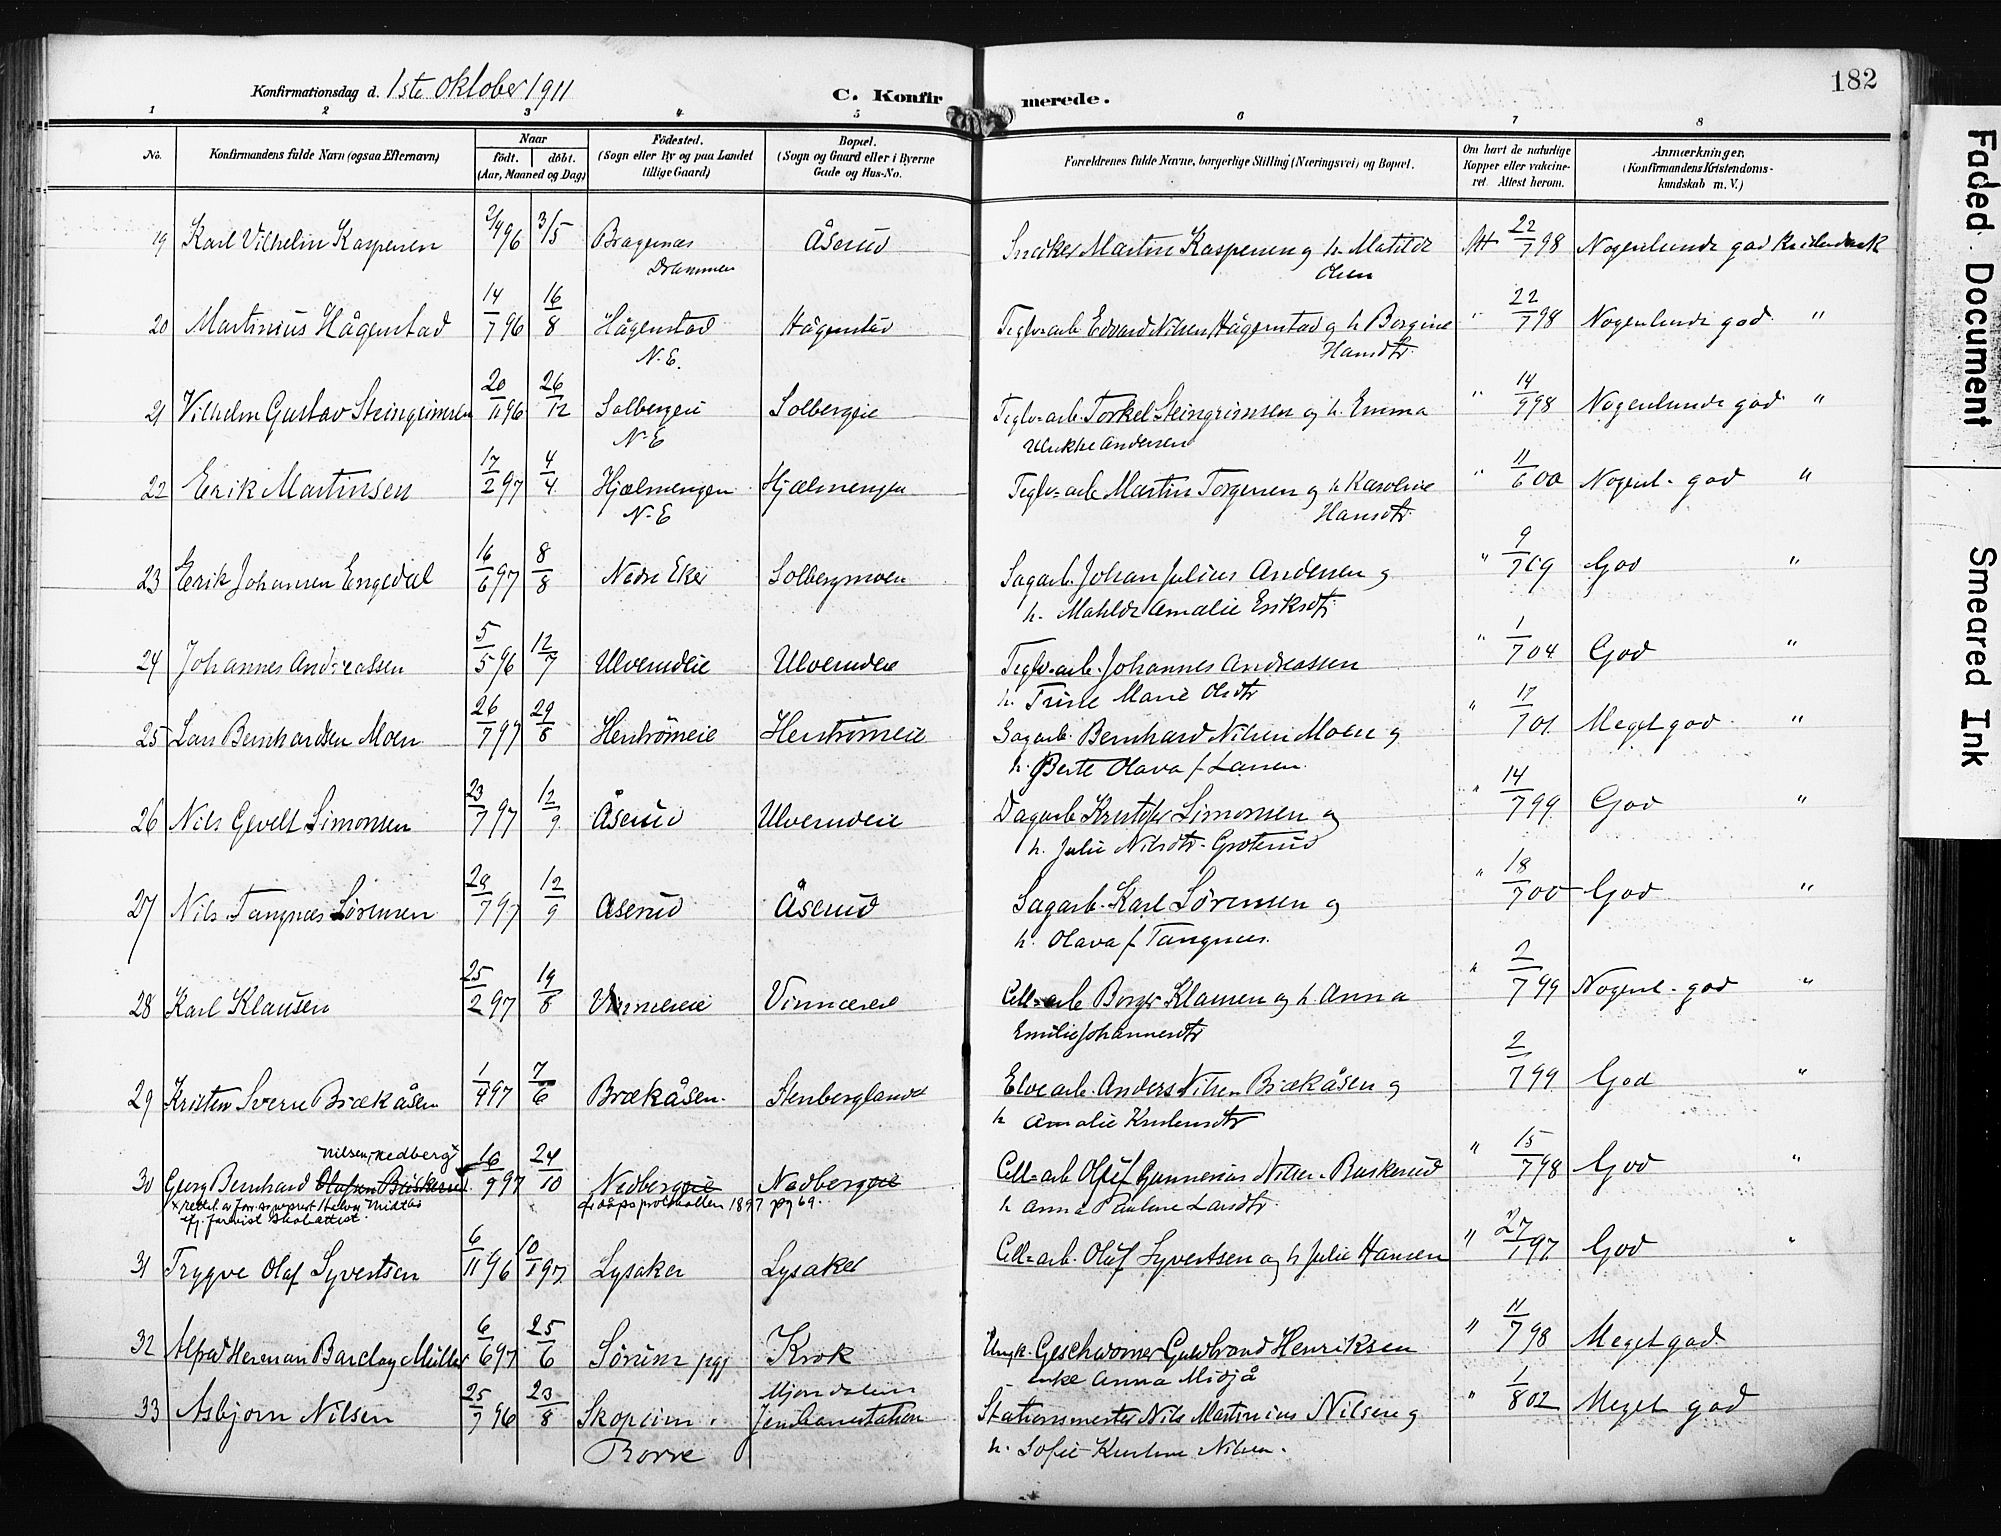 182
Konfirmationsdag d. 1ste Oktober 1911
C. Konfirmerede.
1 2 3 4 5 6 7 8
No. Konfirmandens fulde Navn (ogsaa Efternavn) Naar født. døbt. (Aar, Maaned og Dag) Fødested. (Sogn eller By og paa Landet tillige Gaard) Bopæl. (Sogn og Gaard eller i Byerne Gade og Hus-No. Forældrenes fulde Navne, borgerlige Stilling (Næringsvei) og Bopæl. Om havt de naturlige Kopper eller vakcineret. Attest herom. Anmærkninger, (Konfirmandens Kristendomskundskab m. V.)
19 Karl Vilhelm Kaspersen 2/4 96 3/5 Bragernas Åserud Snæker Martin Kaspersen og h. Matilde Att 22/7 98 Nogenlunde god
Drammen Olsen
20 Martinius Hågenstad 14/7 96 16/8 Hågenstad Hågenstad Teglv-arb. Edvard Nilsen Hågenstad og h Borgine " 22/7 98 Nogenlunde god "
N.E. Hansdtr.
21 Vilhelm Gustav Steingrimsen 20/11 96 26/12 Solbergeie Solbergeie Teglv-arb. Torkel Steingrimsen og h. Emma " 14/9 98 Nogenlunde god "
N.E Ulrikke Andersen
22 Erik Martinsen 17/2 97 4/4 Hjælmengen Hjælmengen Teglv-arb Martin Torgersen og h Karoline " 11/6 00 Nogenl. god "
N.E Hansdtr.
23 Erik Johansen Engedal 16/6 97 8/8 Nedre Eker Solbergmoen Sagarb. Johan Julius Andersen og " 9/7 09 God "
h. Matilde Amalie Eriksdtr.
24 Johannes Andreassen 5/5 96 12/7 Ulverudeie Ulverudeie Teglv-arb. Johannes Andreassen " 1/7 04 God "
h. Trine Marie Olsdtr
25 Lars Bernhardsen Moen 26/7 97 29/8 Herstrømeie Herstrømeie Sagarb. Bernhard Nilsen Moen og " 17/7 01 Meget god "
h. Berte Olava f. Larsen.
26 Nils Gevelt Simonsen 23/7 97 12/9 Åserud Ulverudeie Dagarb Kristofer Simonsen og " 14/7 99 God "
h. Julie Nilsdtr. Grøterud
27 Nils Tangnæs Sørensen 29/7 97 12/9 Aserud Åserud Sagarb. Karl Sørensen og " 18/7 00 God "
h. Olava f Tangnæs.
28 Karl Klausen 25/2 97 19/8 Vinnereie Vinnereie Cell-arb Borger Klausen og h Anna " 2/7 99 Nogenl. god "
Emilie Johannesdtr
29 Kristen Sverre Brækåsen 1/4 97 7/6 Brækåsen. Stenberglandet Elvearb. Anders Nilsen Brækåsen og 2/7 99 God "
h Amalie Kristensdtr
Nilsen, Nedberg
30 Georg Bernhard Olafsen Buskerud 16/9 97 24/10 Nedbergeie Nedbergeie Cell-arb Oluf Gunnerius Nilsen Buskerud " 15/7 98 God "
x rettet af
ifj. forevist skoleattest. dåpsprotokollen 1897 pg 69. h Anna Pauline Larsdtr.
31 Trygve Olaf Syvertsen 6/11 96 10/1 97 Lysaker Lysaker Cell-arb. Oluf Syvertsen og h Julie Hansen " 27/1 97 God "
32 Alfred Herman Barclay Müller 6/6 97 25/6 Sørum pgj Krok Ungk. Geschworner Guldbrand Henriksen " 11/7 98 Meget god
enke Anna Midjå
33 Asbjørn Nilsen 25/7 96 23/8 Skopum Mjøndalen Jernbanestation Stationsmester Nils Martinius Nilsen og " 1/8 02 Meget god
Borre h. Sofie Kristine Nilsen.
Faded Document
Smeared Ink